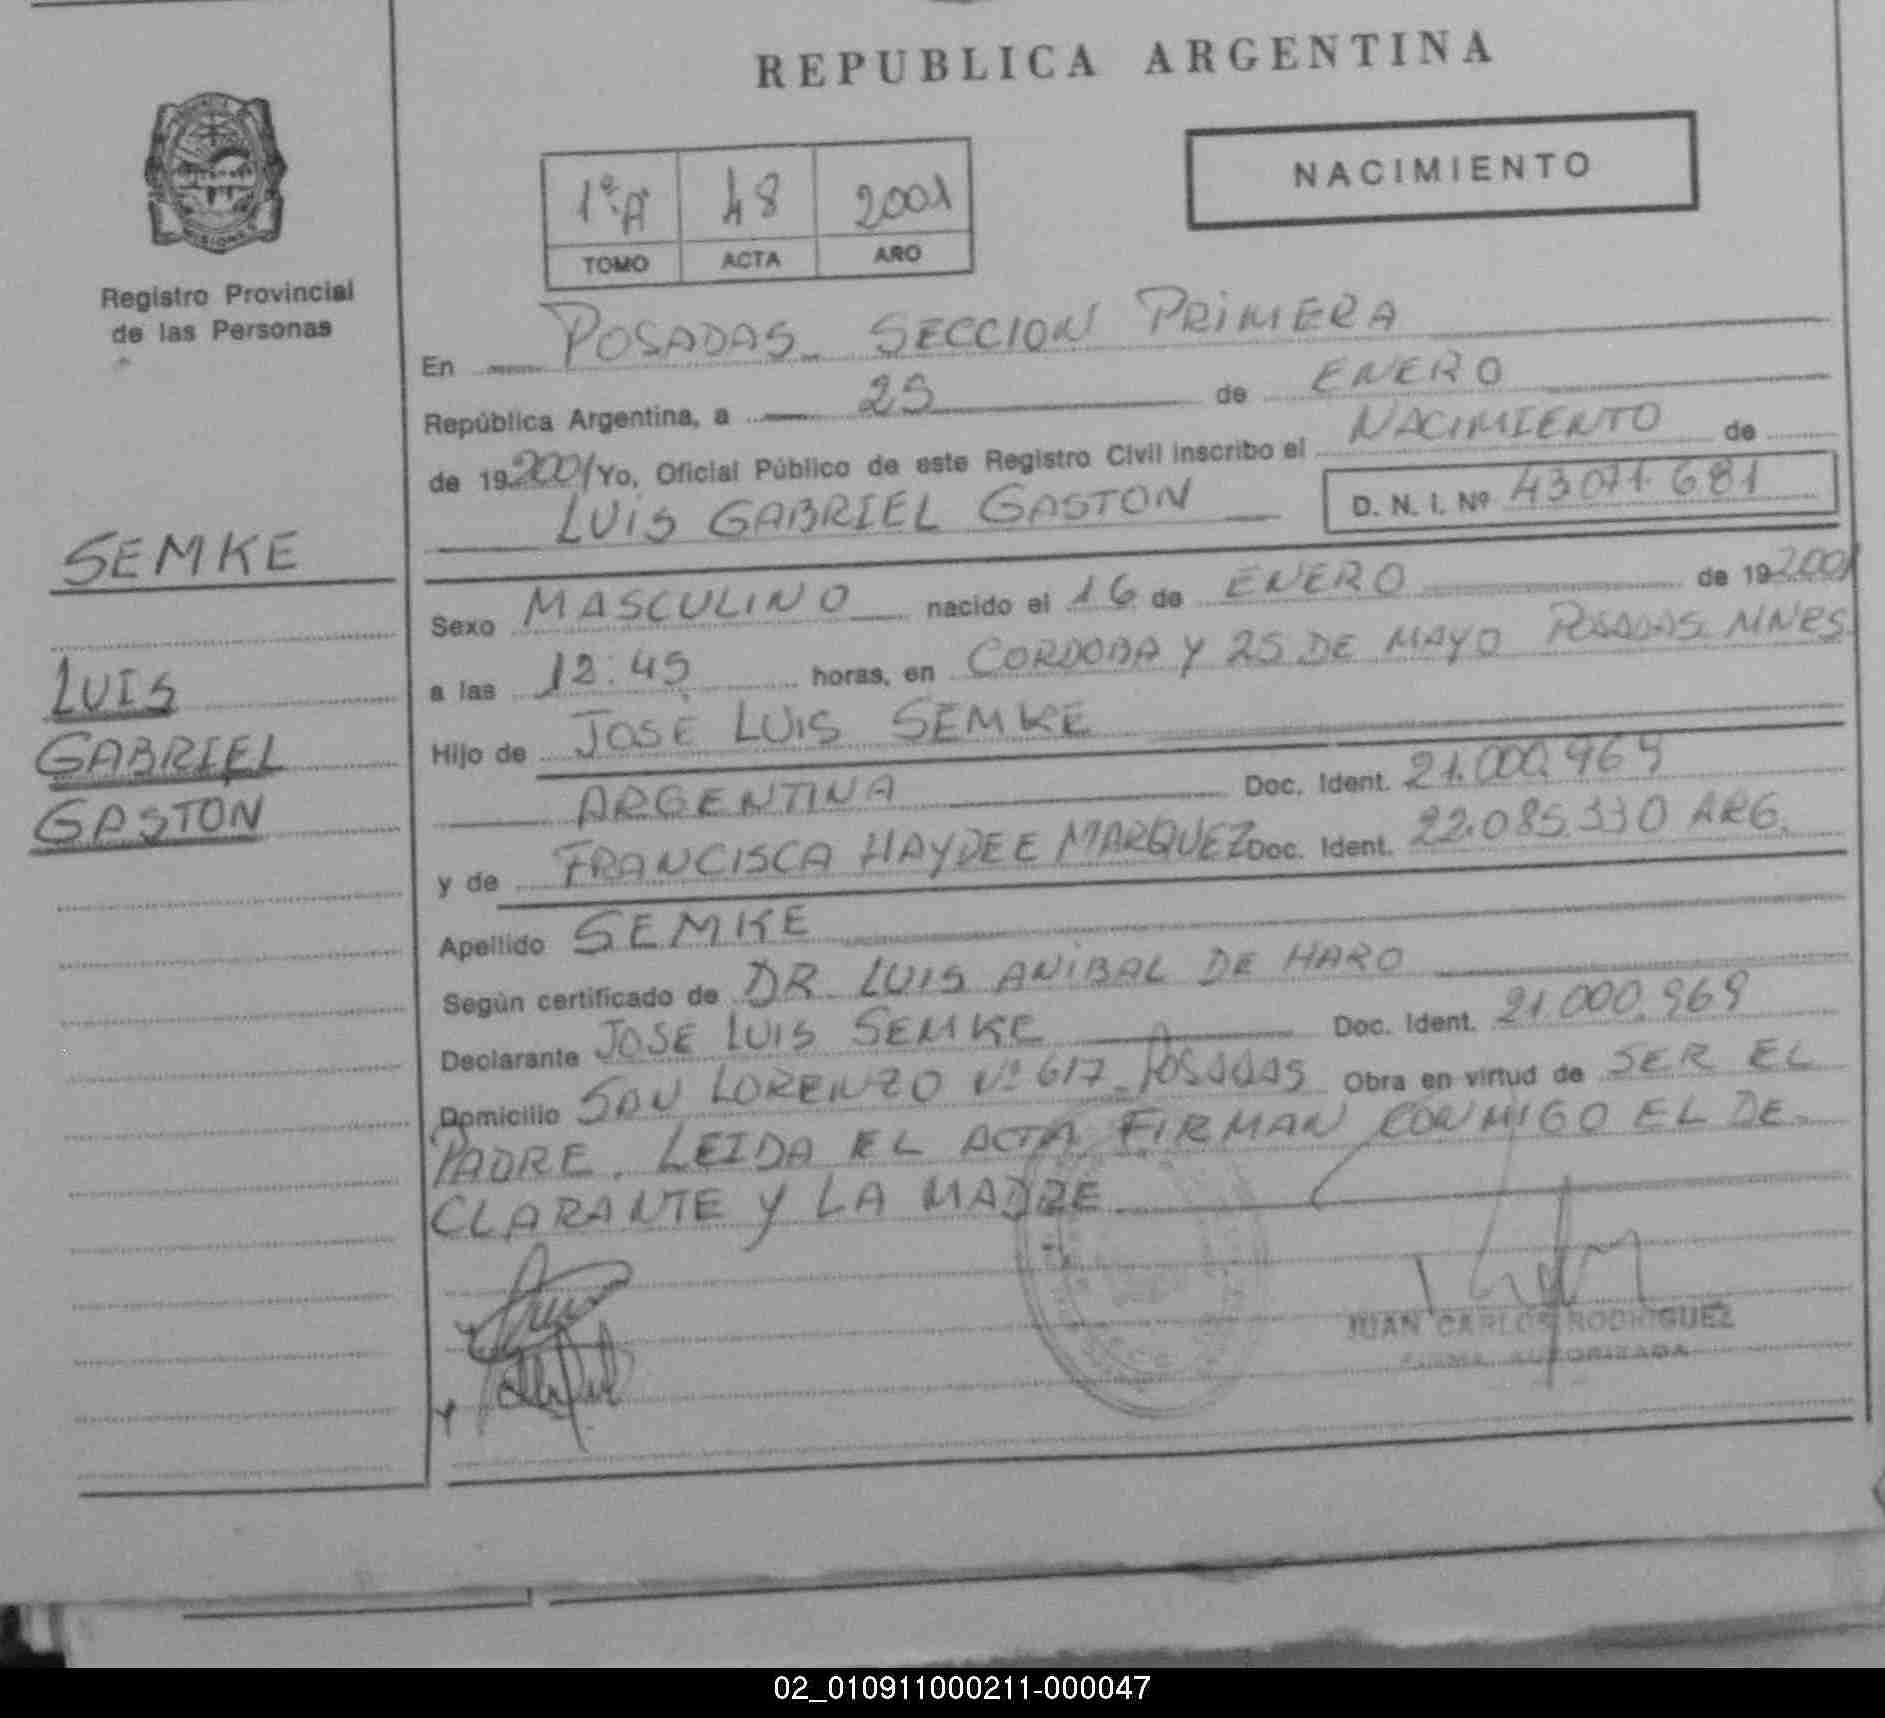 REPUBLICA ARGENTINA
NACIMIENTO
1º A 48 2001
TOMO ACTA AÑO
Registro Provincial
de las Personas
En POSADAS SECCION PRIMERA
República Argentina, a 25 de ENERO
de 19 2001 Yo, Oficial Público de este Registro Civil inscribo el NACIMIENTO de
LUIS GABRIEL GASTON D. N. I. Nº 43071.681
SEMKE
LUIS
GABRIEL
GASTON
Sexo MASCULINO nacido el 16 de ENERO de 19 2001
a las 12:45 horas, en CORDOBA Y 25 DE MAYO POSADAS MNES.
Hijo de JOSE LUIS SEMKE
ARGENTINA Doc. Ident. 21.000.969
y de FRANCISCA HAYDEE MARQUEZ Doc. Ident. 22.085.330 ARG.
Apellido SEMKE
Según certificado de DR LUIS ANIBAL DE HARO
Declarante JOSE LUIS SEMKE Doc. Ident. 21.000.969
Domicilio SAN LORENZO Nº 617 POSADAS Obra en virtud de SER EL
PADRE. LEIDA EL ACTA FIRMAN CONMIGO EL DE-
CLARANTE Y LA MADRE
JUAN CARLOS RODRIGUEZ
FIRMA AUTORIZADA
02_010911000211-000047